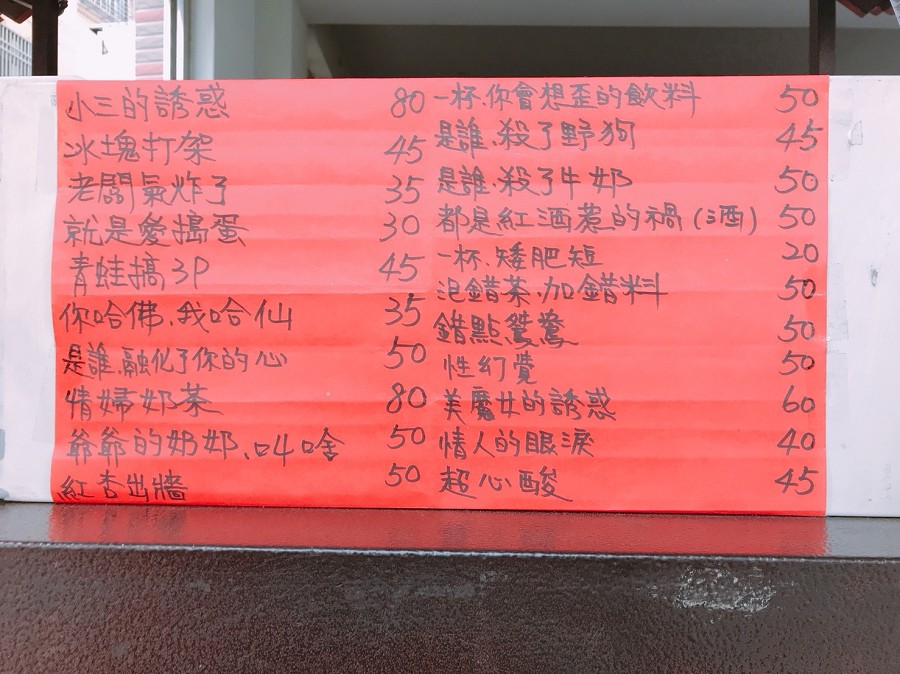 小三的誘惑 80
冰塊打架 45
老闆氣炸了 35
就是愛搗蛋 30
青蛙搞3P 45
你哈佛、我哈仙 35
是誰、融化了你的心 50
情婦奶茶 80
爺爺的奶奶、叫啥 50
紅杏出牆 50
一杯、你會想歪的飲料 50
是誰、殺了野狗 45
是誰、殺了牛奶 50
都是紅酒惹的禍(酒) 50
一杯、矮肥短 20
泡錯茶、加錯料 50
錯點鴛鴦 50
性幻覺 50
美魔女的誘惑 60
情人的眼淚 40
超心酸 45